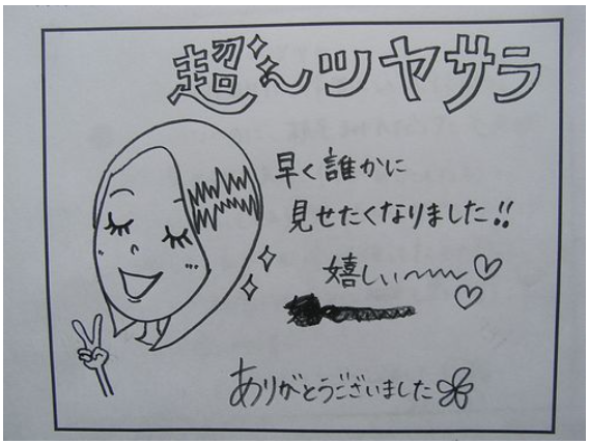 超～ツヤサラ
早く誰かに
見せたくなりました!!
嬉しい〜〜〜♡
♡
ありがとうございました